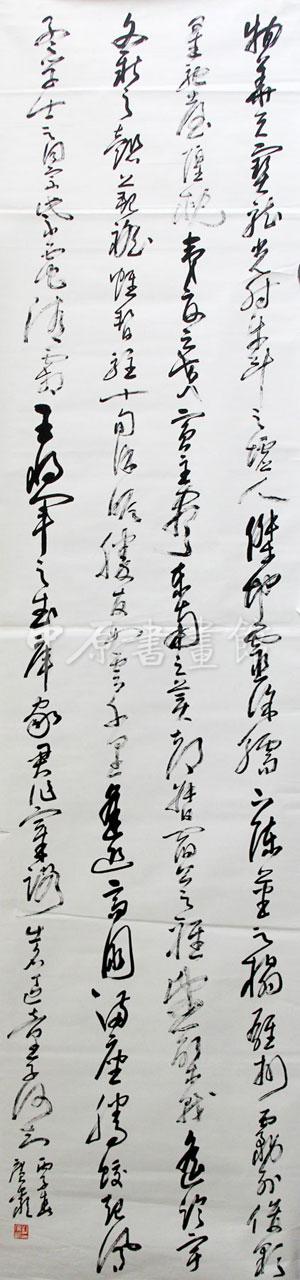 物華天寶龍光射牛斗之墟人傑地靈徐孺下陳蕃之榻雄州霧列俊彩
星馳臺隍枕夷夏之交賓主盡東南之美都督閻公之雅望棨戟遙臨宇
文新之懿範襜帷暫駐十旬休暇勝友如雲千里逢迎高朋滿座騰蛟起鳳
孟學士之詞宗紫電清霜王將軍之武庫家君作宰路出名區童子何知
中原書畫館